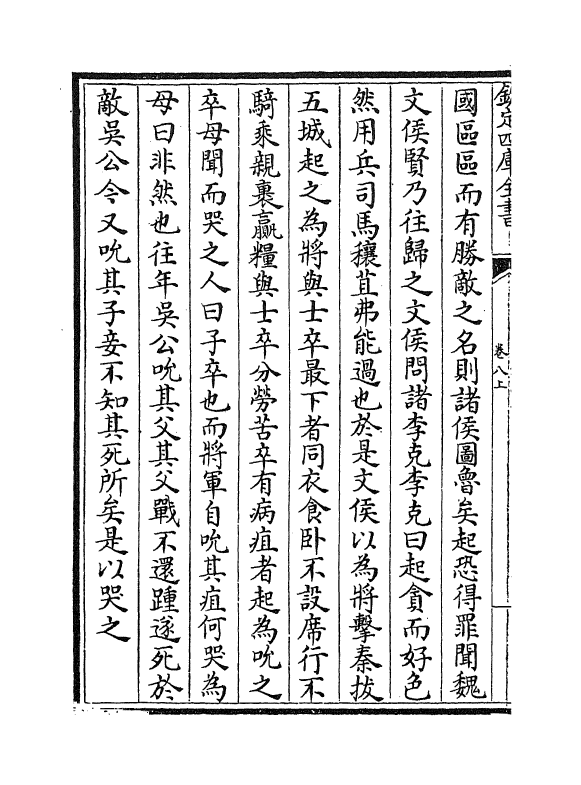 欽定四庫全書
卷八上
國區區而有勝敵之名則諸侯圖魯矣起恐得罪聞魏
文侯賢乃往歸之文侯問諸李克李克曰起貪而好色
然用兵司馬穰苴弗能過也於是文侯以為將擊秦拔
五城起之為將與士卒最下者同衣食卧不設席行不
騎乘親裹贏糧與士卒分勞苦卒有病疽者起為吮之
卒母聞而哭之人曰子卒也而將軍自吮其疽何哭為
母曰非然也往年吳公吮其父其父戰不還踵遂死於
敵吳公今又吮其子妾不知其死所矣是以哭之